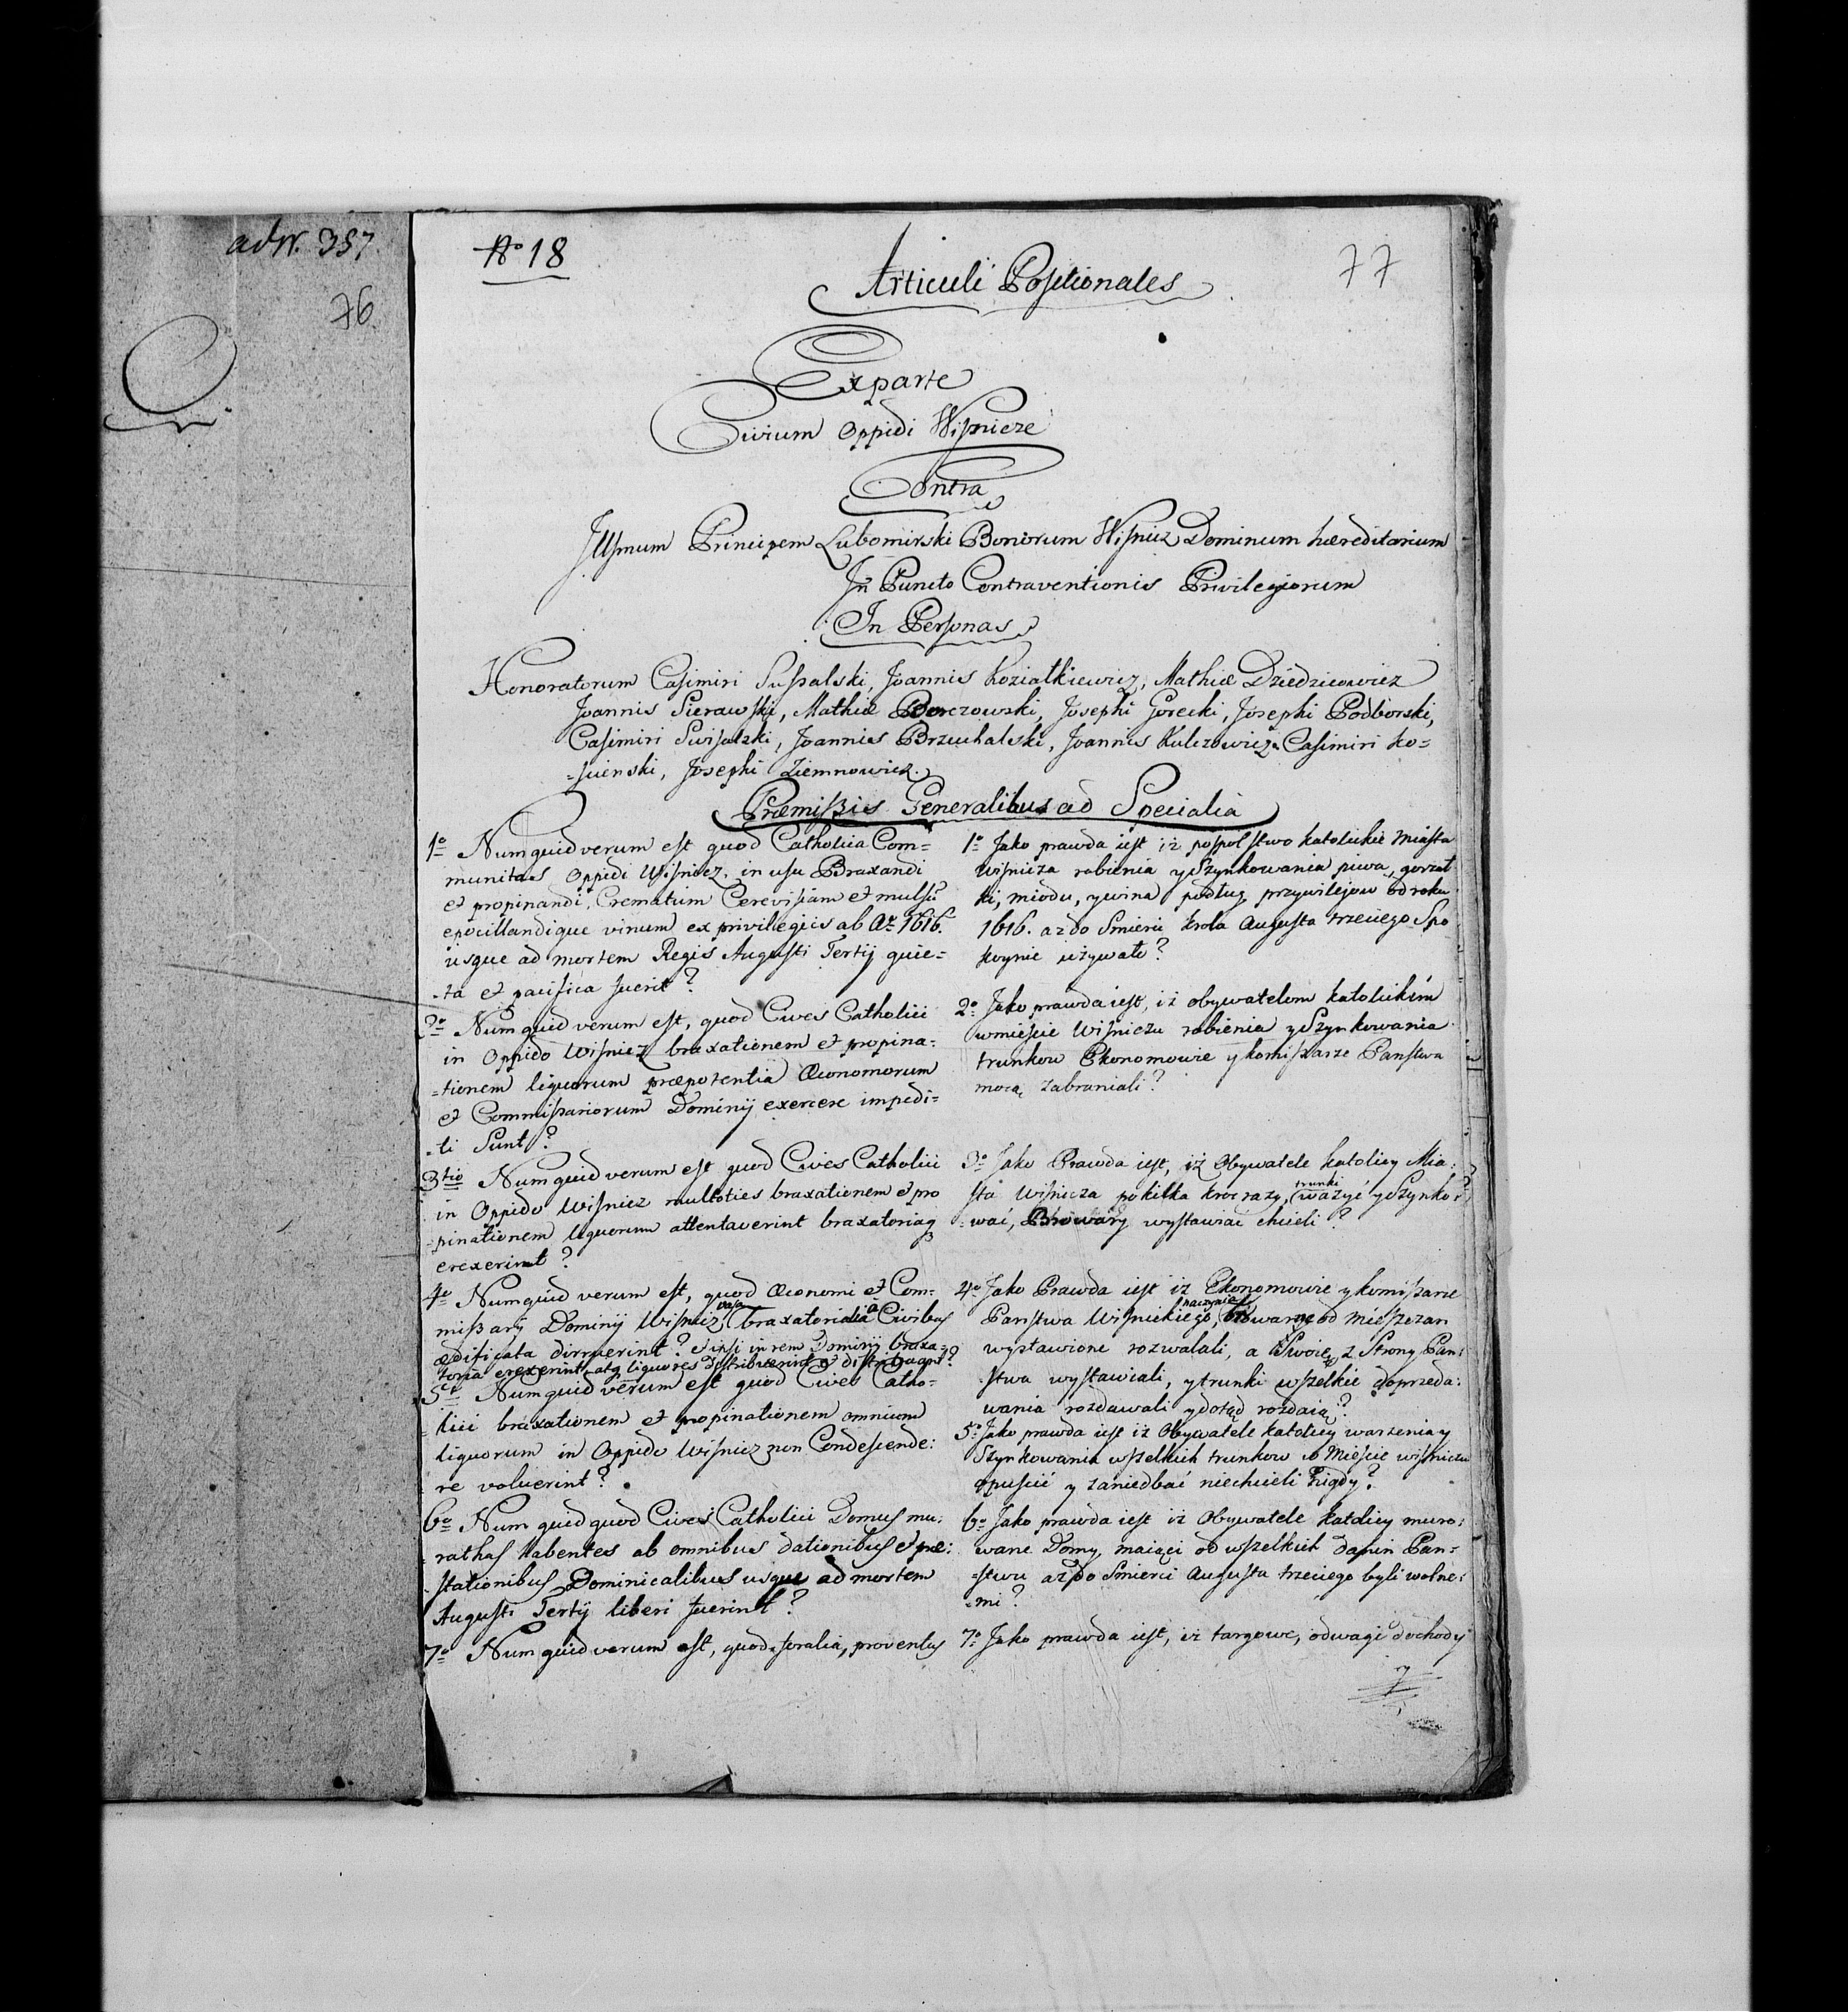 adN. 357.
76
No 18
77
Articuli Positionales
Ex parte
Civium Oppidi Wisnicze
Contra
Illsmum Principem Lubomirski Bonorum Wisnicz Dominum hæreditarium
In Puncto Contraventionis Privilegiorum
In Personas
Honoratorum Casimiri Suszalski, Joannis Koziatkiewicz, Mathiæ Dziedzicowicz
Joannis Sierawski, Mathiæ Borczowski, Josephi Gorecki, Josephi Podborski,
Casimiri Swisalzki, Joannis Brzuchalski, Joannis Kulczowicz, Casimiri Ko=
=sienski, Josephi Ziemnowicz.
Præmissis Generalibus ad Specialia
1o Numquid verum est quod Catholica Com=
munitas Oppidi Wisnicz, in usu Braxandi
et propinandi, Crematum Cerevisiam et mulsū
epocillandique vinum ex privilegiis ab Ao 1616.
usque ad mortem Regis Augusti Tertij quie=
=ta et pacifica fuerit?
2o Num quid verum est, quod Cives Catholici
in Oppido Wisnicz braxationem et propina=
=tionem liquorum præpotentia Œconomorum
et Commissariorum Dominij exercere impedi=
=ti Sunt?
3tio Numquid verum est quod Cives Catholici
in Oppido Wisnicz multoties braxationem et pro
=pinationem liquorum attentaverint braxatoriaq
erexerint?
4o Numquid verum est, quod Œconomi et Com=
missarij Dominij Wisnicz, vasa braxatoria a Civibus
ædificata dirruerint? et ipsi in rem Dominij braxa=
toria erexerint atq liquores distribuerint et distribuant?
5o Num quid verum est quod Cives Catho=
lici braxationem et propinationem omnium
liquorum in Oppido Wisnicz non Condescende=
re voluerint?
6o Num quid quod Cives Catholici Domus mu=
rathas habentes ab omnibus dationibus et præ=
stationibus Dominicalibus usque ad mortem
Augusti Tertij liberi fuerint?
7o Num quid verum est, quod foralia, proventus
1o Jako prawda iest iż pospolstwo katolickie Miasta
Wisnicza robienia y Szynkowania piwa, gorzał
ki, miodu, y wina podług przywilejow od roku
1616. aż do Smierci krola Augusta trzeciego Spo
koynie używało?
2o Jako prawda iest, iż obywatelom katolickim
w mieście Wisniczu robienia y Szynkowania
trunkow Ekonomowie y komissarze Panstwa
mocą zabraniali?
3o Jako Prawda iest, iż Obywatele katolicy Mia=
sta Wisnicza po kilka kroc razy, trunki ważyć y Szynko=
=wać, Browary wystawiać chcieli?
4o Jako Prawda iest iż Ekonomowie y komissarze
Panstwa Wisnickiego, naczynia browarne od mieszczan
wystawione rozwalali, a Swoie z Strony Pan=
=stwa wystawiali, y trunki wszelkie do przeda=
wania rozdawali y dotąd rozdaią?
5o Jako prawda iest iż Obywatele katolicy warzenia y
Szynkowania wszelkich trunkow w Mieście wisniczu
opuścić y zaniedbać niechcieli nigdy?
6o Jako prawda iest iż Obywatele katolicy muro=
wane Domy maiąci od wszelkich danin Pan=
=stwu aż do Smierci Augusta trzeciego byli wolne=
=mi?
7o Jako prawda iest, iż targowe, od wagi dochody